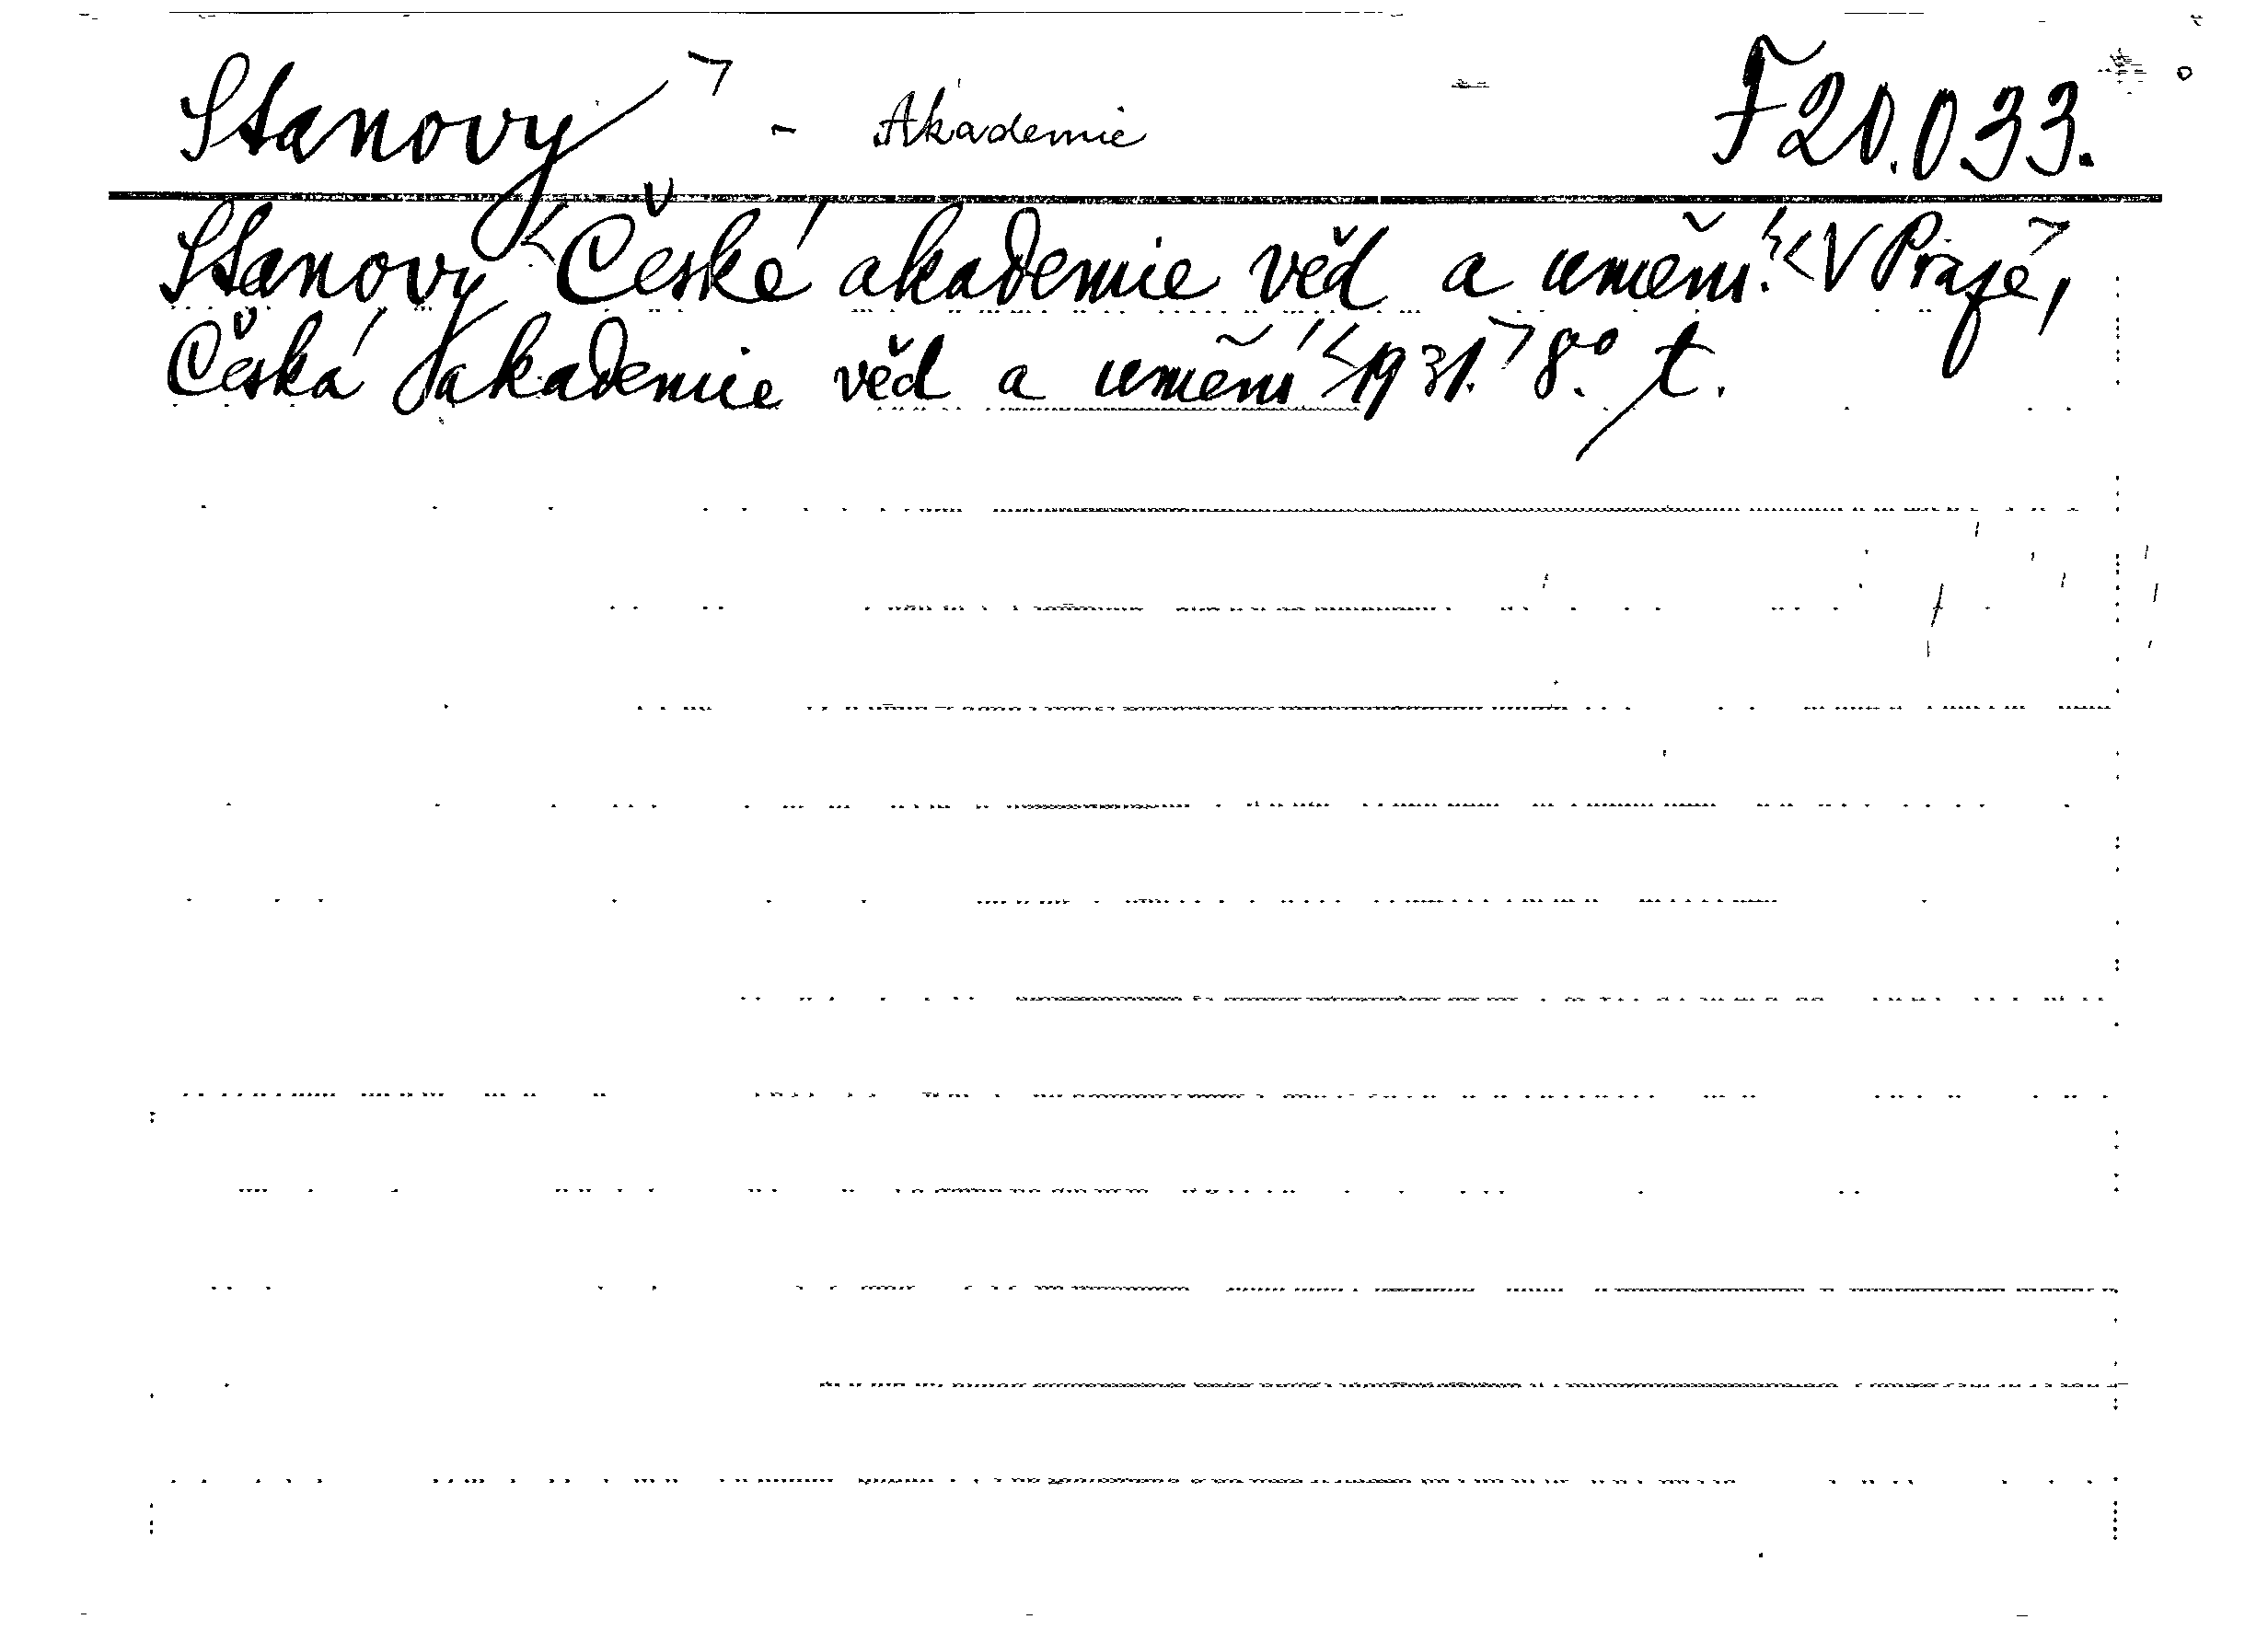 Stanovy - Akademie F 20.033.
Stanovy České akademie věd a umění. V Praze,
Česká akademie věd a umění 1931. 8º. t.